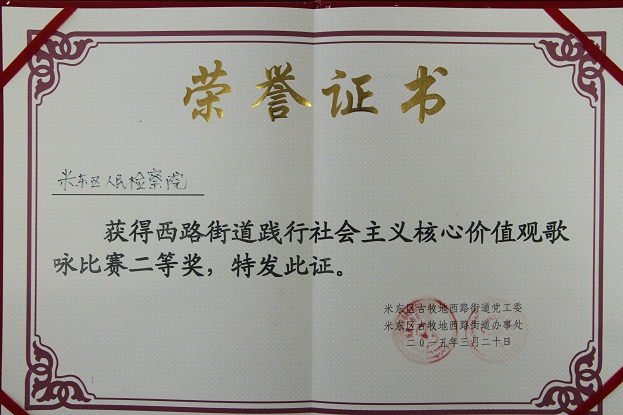 荣誉证书
米东区人民检察院
获得西路街道践行社会主义核心价值观歌
咏比赛二等奖，特发此证。
米东区古牧地西路街道党工委
米东区古牧地西路街道办事处
二〇一五年三月二十日